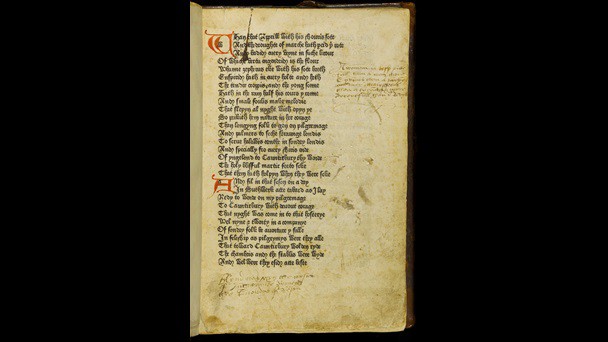 Whan that Apprill with his shouris sote
And the droughte of marche hath percid þe rote
And badid euery veyne in suche licour
Of whiche vertu engendrid is the flour
Whanne zepherus eke with his sote breth
Enspirid hath in euery holte and heth
The tendir croppis and the yong sonne
Hath in the ram half his cours y ronne
And smale foulis make melodie
That slepyn al nyght with opyn ye
So prikith hem nature in her corage
Than longyng folk to gon on pilgremage
And palmers to seche straunge londis
To serue halowis couthe in sondry londis
And specially fro euery shiris ende
Of yngelond to Cauntirbury thy wende
The holy blisful martir forto seke
That them hath holpyn whan they were seke
And fil in that seson on a day
In Suthwerk atte tabard as I lay
Redy to wende on my pilgremage
To Cauntirbury with deuout corage
That nyght was come in to that hosterye
Wel nyne &amp; twenty in a companye
Of sondry folk be auenture y falle
In feleship as pilgrymys were they alle
That toward Cauntirbury wolden ryde
The chambris and the stablis were wyde
And wel were they esid atte beste